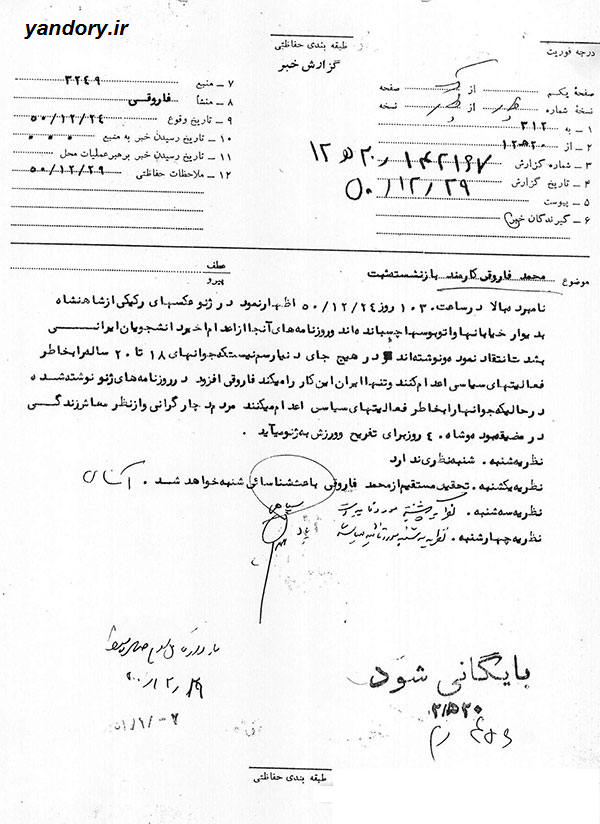 yandory.ir
طبقه بندی حفاظتی
گزارش خبر
درجه فوریت
صفحه یکم از صفحه
نسخه شماره از نسخه
۱ ـ به ۳۱۲
۲ ـ از ۱۲ﻫ۲۰
۳ ـ شماره گزارش ۱۴۲۱۶۷ / ۱۲ﻫ۲۰
۴ ـ تاریخ گزارش ۵۰/۱۲/۲۹
۵ ـ پیوست
۶ ـ گیرندگان خبر
۷ ـ منبع ۳۲۴۹
۸ ـ منشأ فاروقی
۹ ـ تاریخ وقوع ۵۰/۱۲/۲۴
۱۰ ـ تاریخ رسیدن خبر به منبع ۰ ۰ ۰
۱۱ ـ تاریخ رسیدن خبر برهبر عملیات محل
۱۲ ـ ملاحظات حفاظتی ۵۰/۱۲/۲۹
موضوع محمد فاروقی کارمند بازنشسته ثبت
عطف
پیرو
نامبرده بالا در ساعت ۱۰۳۰ روز ۵۰/۱۲/۲۴ اظهار نمود در ژنو عکسهای رکیکی از شاهنشاه
بدیوار خیابانها و اتوبوسها چسبانده اند و روزنامه های آنجا از اعدام اخیر دانشجویان ایرانی
بشدت انتقاد نموده و نوشته اند در هیچ جای دنیا رسم نیست که جوانهای ۱۸ تا ۲۰ ساله را بخاطر
فعالیتهای سیاسی اعدام کنند و تنها ایران این کار را میکند فاروقی افزود در روزنامه های ژنو نوشته شده
در حالیکه جوانها را بخاطر فعالیتهای سیاسی اعدام میکنند مردم دچار گرانی و از نظر معاش زندگی
در مضیقه بوده و شاه ۴۰ روز برای تفریح و ورزش به ژنو میآید .
نظریه شنبه . شنبه نظری ندارد
نظریه یکشنبه . تحقیق مستقیم از محمد فاروقی باعث شناسائی شنبه خواهد شد .
نظریه سه شنبه .
نظریه چهارشنبه .
۵۰/۱۲/۲۹
بایگانی شود
طبقه بندی حفاظتی